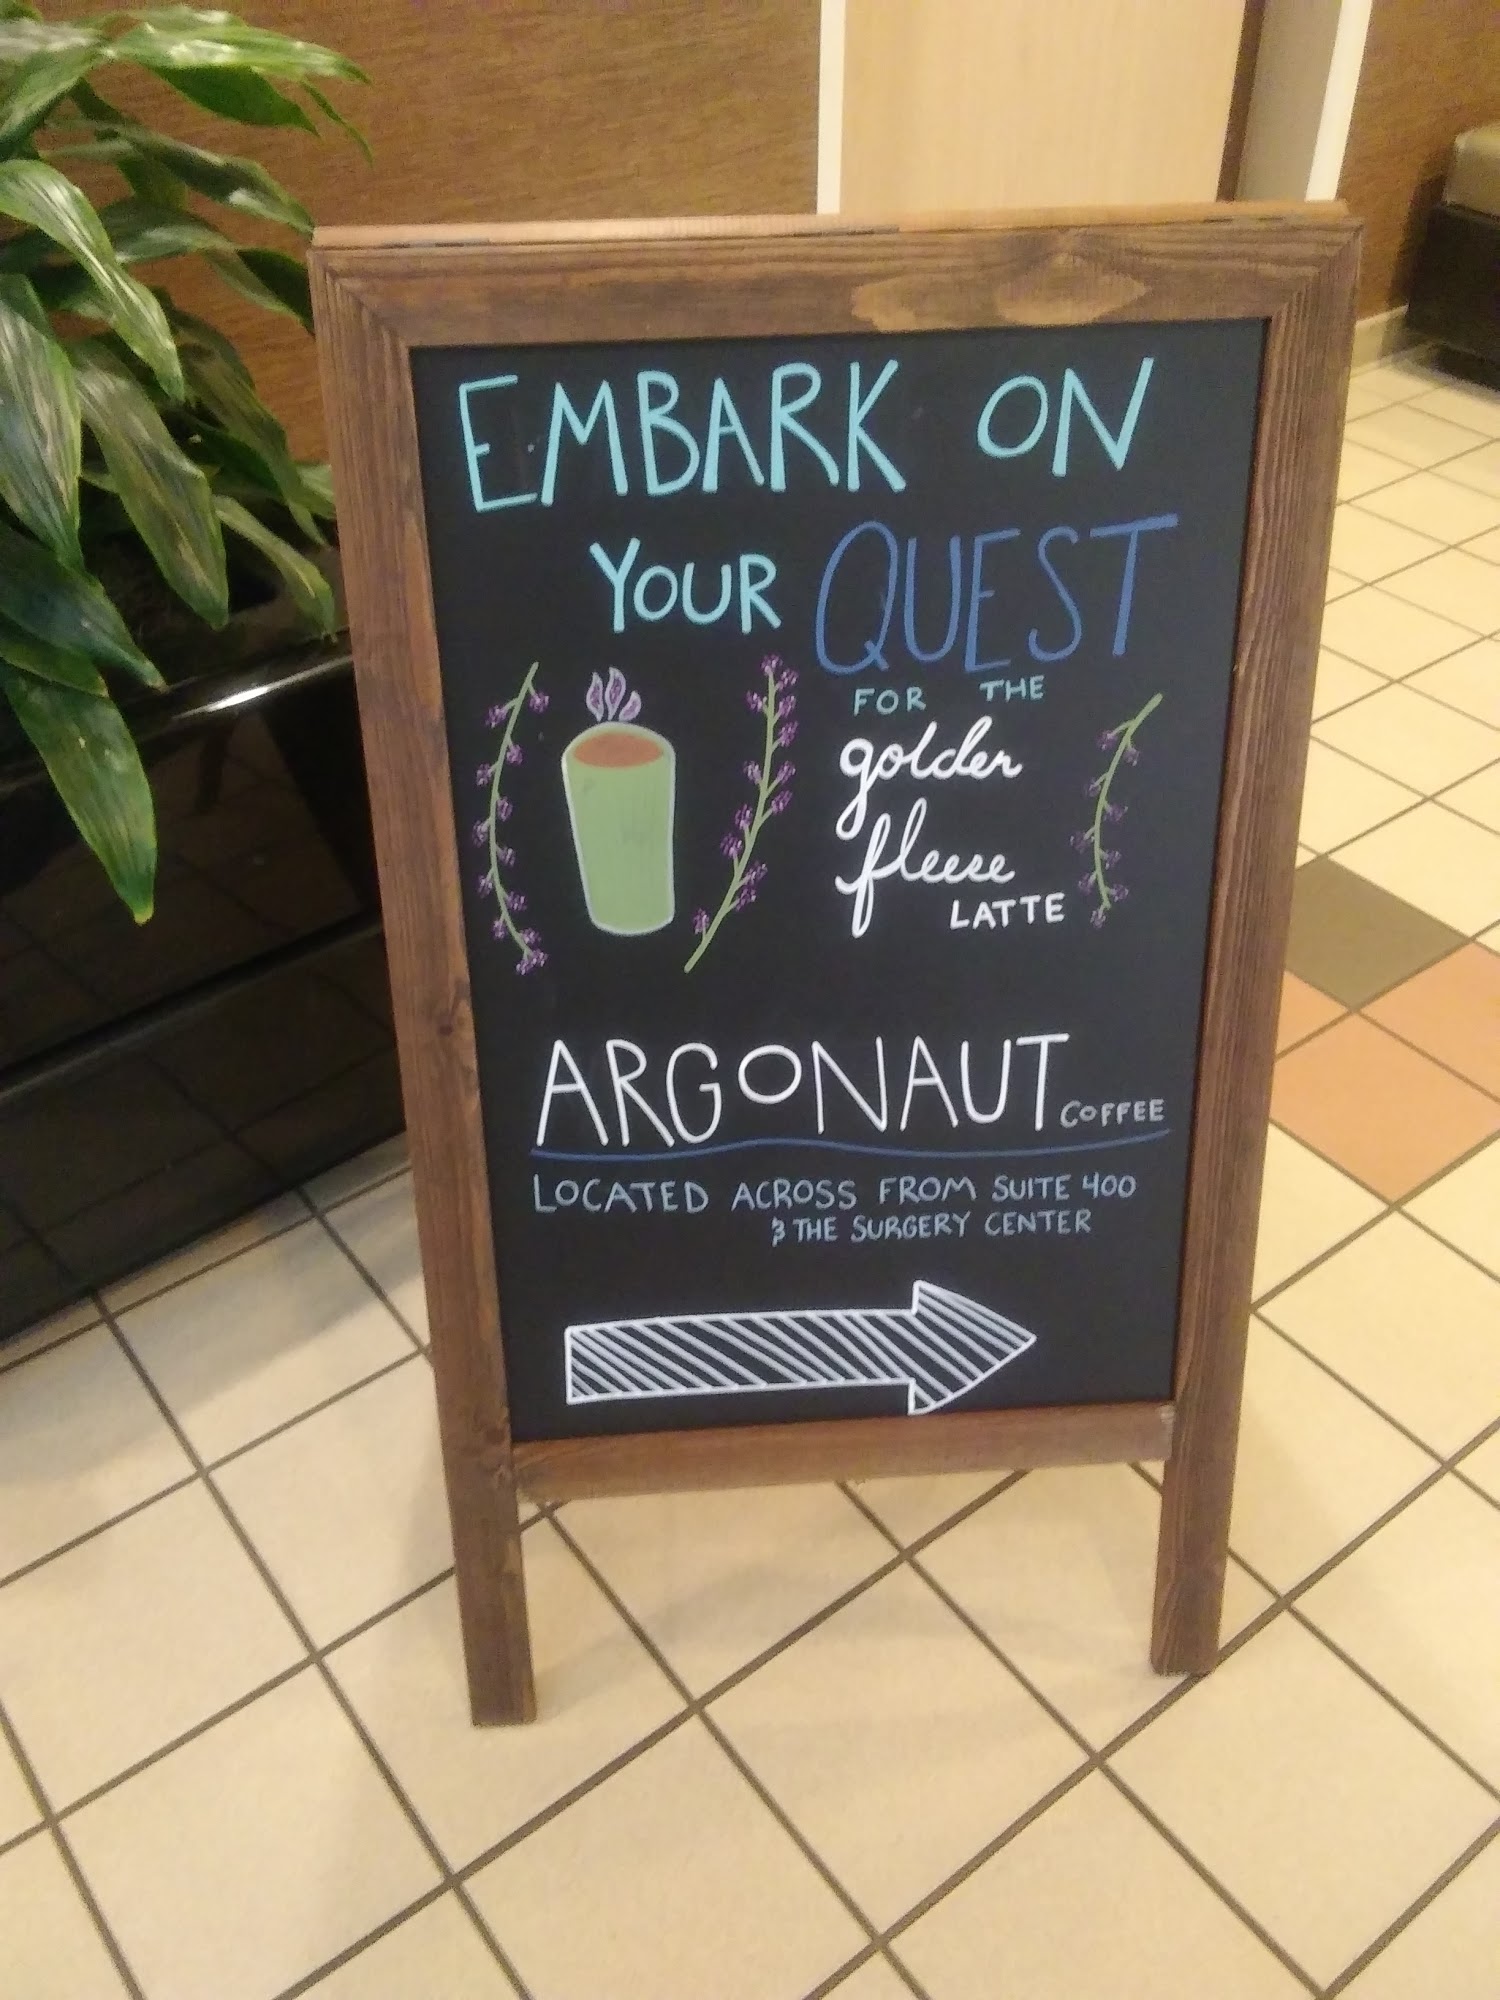 EMBARK ON
YOUR QUEST
FOR THE
golden
fleece
LATTE
ARGONAUT COFFEE
LOCATED ACROSS FROM SUITE 400
& THE SURGERY CENTER